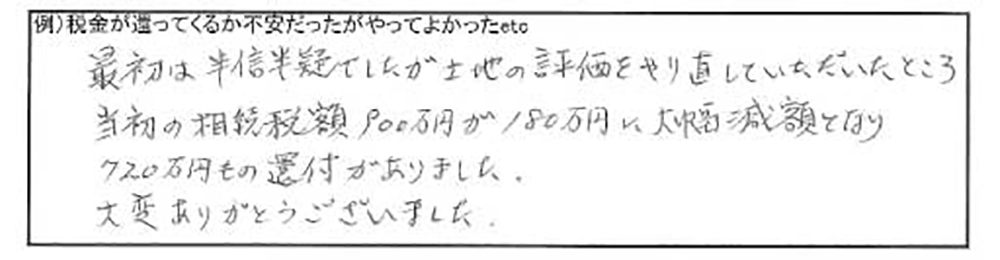 例)税金が還ってくるか不安だったがやってよかったetc
最初は半信半疑でしたが土地の評価をやり直していただいたところ
当初の相続税額900万円が180万円に大幅減額となり
720万円もの還付がありました.
大変ありがとうございました.